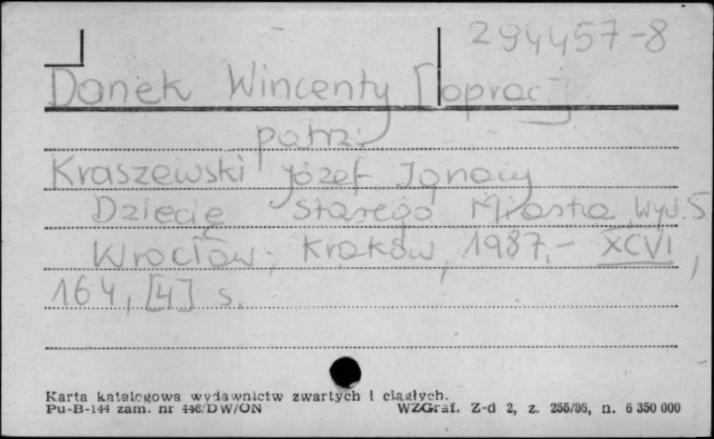 294457-8
Danek Wincenty [oprac.]
patrz:
Kraszewski Józef Ignacy
Dziecię Starego Miasta Wyd. 5
Wrocław; Kraków, 1987.- XCVI,
164, [4] s.
Karta katalogowa wydawnictw zwartych i ciągłych.
Pu-B-144 zam. nr 448/DW/ON WZGraf. Z-d 2, z. 256/86, n. 6 350 000